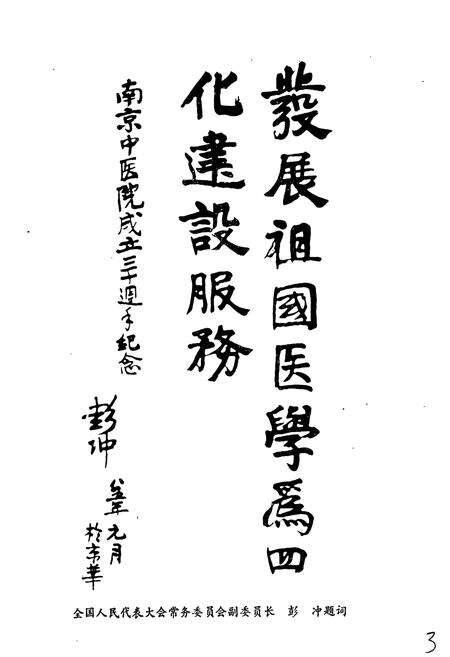 發展祖國医學爲四
化建設服務
南京中医院成立三十週年紀念
彭冲
八五年元月
於京華
全国人民代表大会常务委员会副委员长 彭 冲题词
3